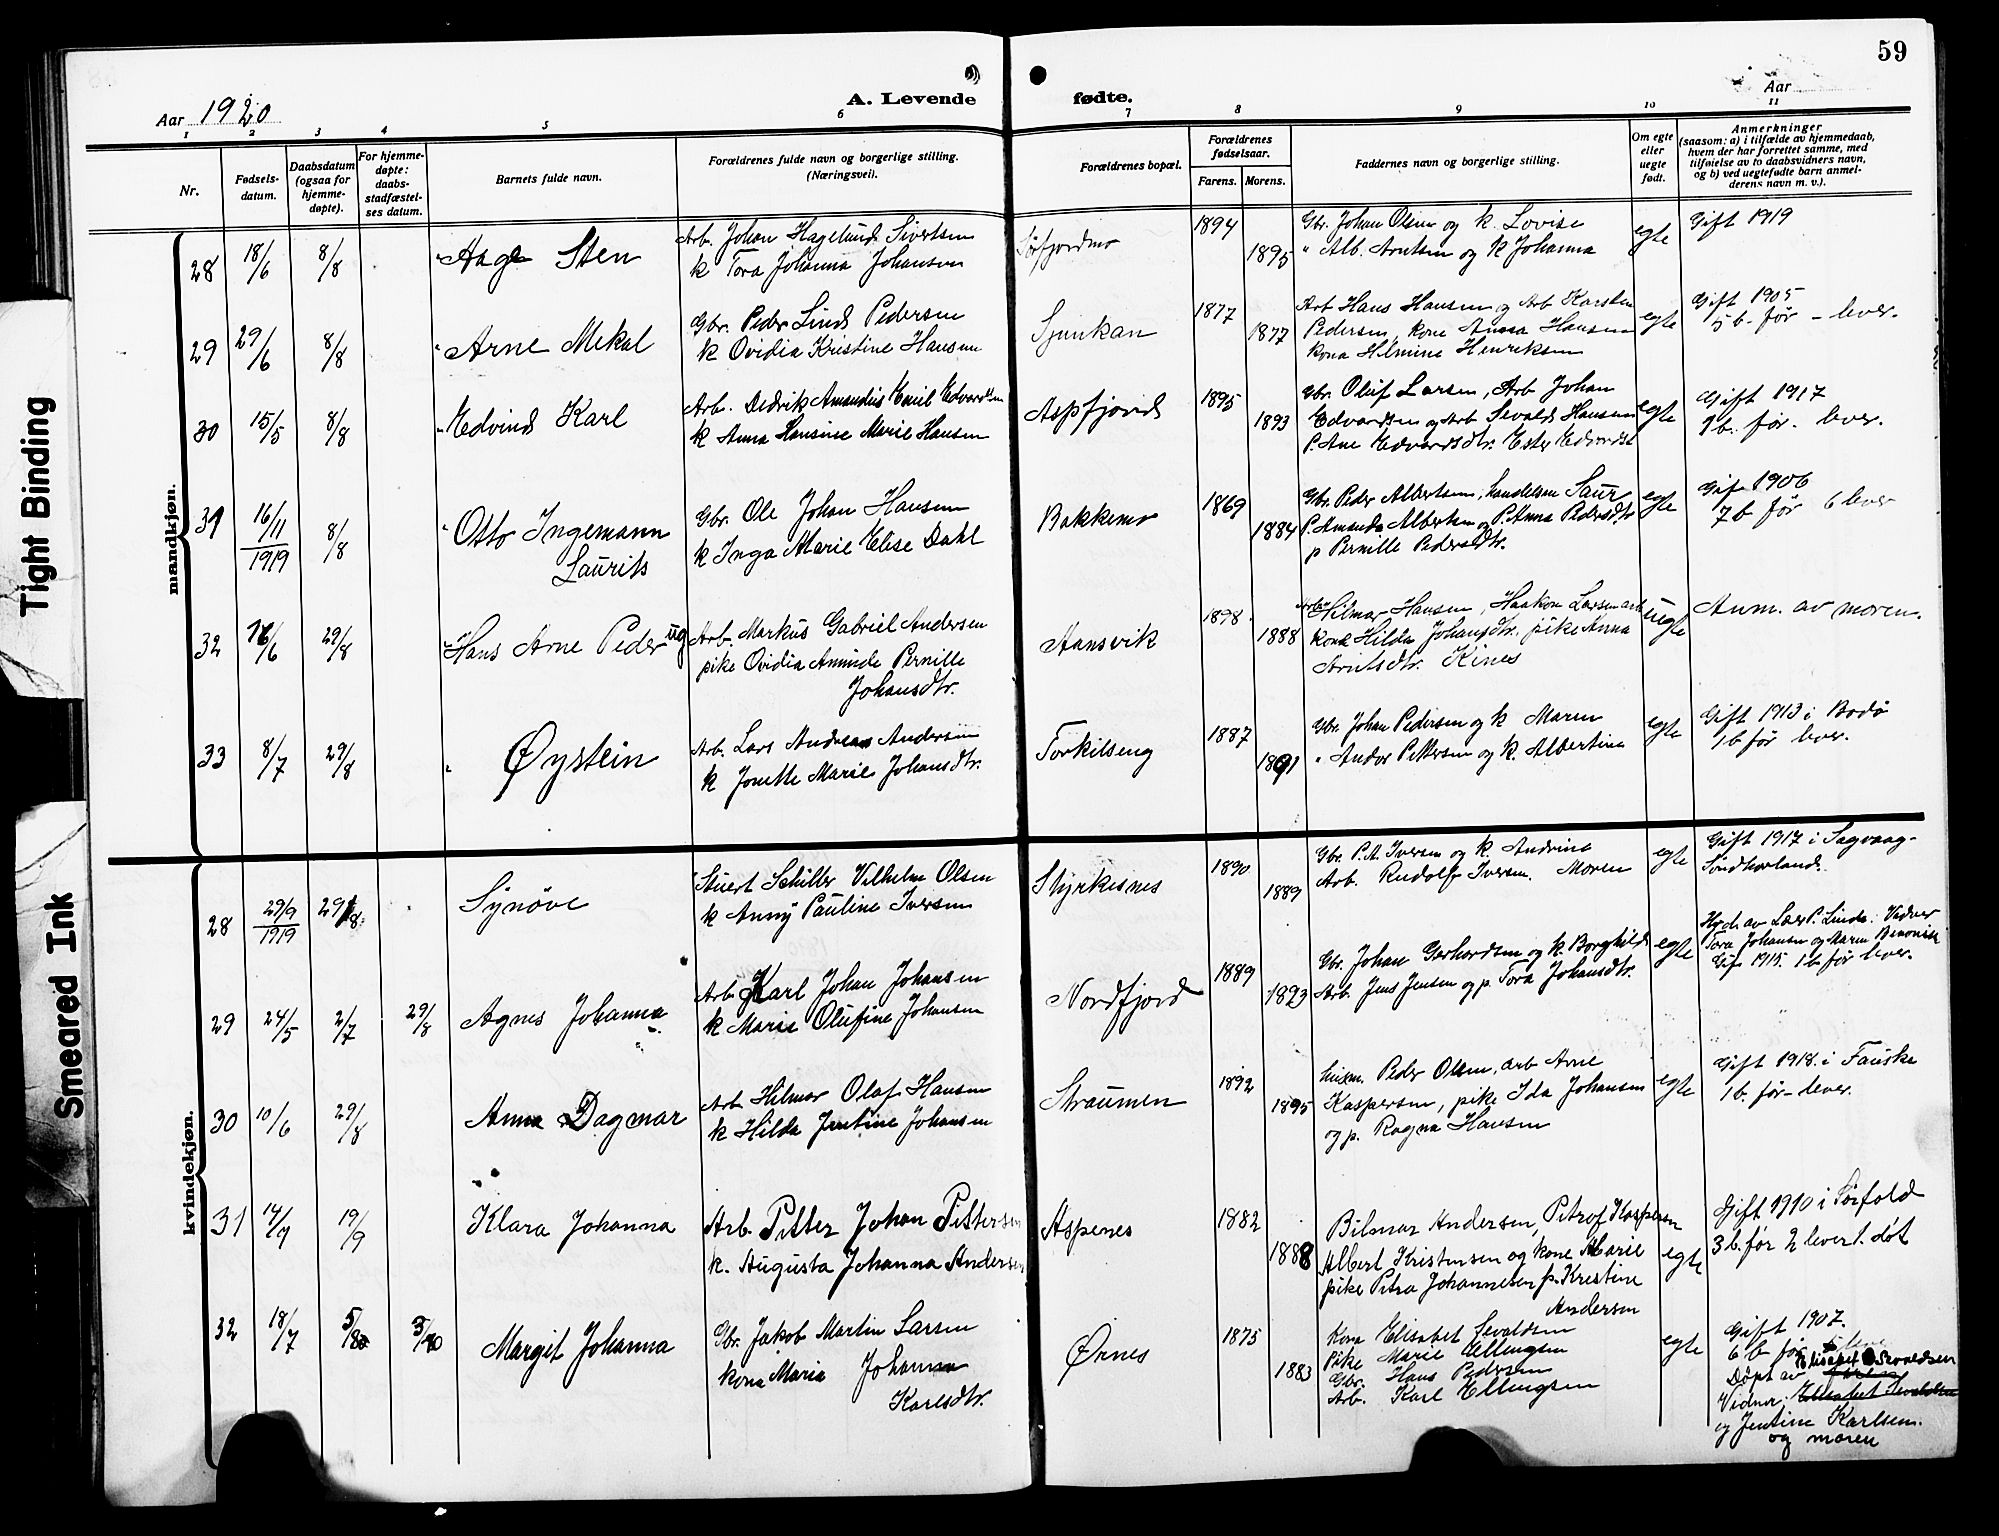 59
Aar 1920
A. Levende fødte.
Aar
1 2 3 4 5 6 7 8 9 10 11
Nr.
Fødsels-
datum.
Daabsdatum
(ogsaa for
hjemme-
døpte).
For hjemme-
døpte:
daabs-
stadfæstel-
ses datum.
Barnets fulde navn.
Forældrenes fulde navn og borgerlige stilling.
(Næringsvei).
Forældrenes bopæl.
Forældrenes
fødselsaar.
Farens. Morens.
Faddernes navn og borgerlige stilling.
Om egte
eller
uegte
født.
Anmerkninger
(saasom: a) i tilfælde av hjemmedaab,
hvem der har forrettet samme, med
tilføielse av to daabsvidners navn,
og b) ved uegtefødte barn anmel-
derens navn m. v.).
mandkjøn.
28 18/6 8/8 Aage Sten
Arb. Johan Hagelund Sivertsen
k Tora Johanna Johansen
Sørfjordmo 1894 1895
Gbr. Johan Olsen og k. Lovise
" Alb. Arntsen og k Johanna
egte
Gift 1919
29 29/6 8/8 Arne Mekal
Gbr. Peder Lind Pedersen
k Ovidia Kristine Hansen
Sjunkan 1877 1877
Arb Hans Hansen og Arb Karsten
Pedersen, kone Anna Hansen
kona Hilmine Henriksen
egte
Gift 1905
5 b. før - lever.
30 15/5 8/8 Edvind Karl
Arb. Didrik Amandus Emil Edvardsen
k Anna Hansine Marie Hansen
Aspfjord 1895 1893
Gbr. Oluf Larsen, Arb Johan
Edvardsen og Arb Sevald Hansen
P. Ane Edvardsdtr. Ester Edvardsd
egte
Gift 1917
1 b. før. lever.
31 16/11 1919 8/8 Otto Ingemann
Laurits
Gbr. Ole Johan Hansen
k Inga Marie Elise Dahl
Bakkemo 1869 1884
Gbr. Peder Albertsen, handelsm Saur
P. Amanda Albertsen og P. Anna Pedersdtr
p Pernille Pedersdtr.
egte
Gift 1906
7 b før 6 lever
32 16/6 29/8 Hans Arne Peder ug
Arb. Markus Gabriel Andersen
pike Ovidia Aminde Pernille
Johansdtr.
Aansvik 1898. 1888
Arb. Hilmar Hansen, Haakon Larsen arb
kone Hilda Johansdtr., pike Anna
Arntsdtr. Kines
uegte
Anm. av moren.
33 8/7 29/8 Øystein
Arb. Lars Andreas Andersen
k Jonette Marie Johansdtr.
Torkilseng 1887 1891
Gbr. Johan Pedersen og k Maren
" Andor Pettersen og k. Albertine
egte
Gift 1913 i Bodø
1 b før lever.
kvindekjøn.
28 29/9 1919 29/8 Synøve
Stuert Schiller Vilhelm Olsen
k Anny Pauline Iversen
Styrkesnes 1890 1889
Gbr. P. A. Iversen og k. Andrine
Arb. Rudolf Iversen. Moren
egte
Gift 1917 i Sagvaag-
Søndhorland.
29 24/5 2/7 29/8 Agnes Johanna
Arb. Karl Johan Johansen
k Marie Olufine Johansen
Nordfjord 1889 1893
Gbr. Johan Gerhardsen og k. Borghild
Arb. Jens Jensen og p. Tora Johansdtr.
egte
Hjd. av Lær P. Lind. Vidner
Tora Johansen og Maren Benonise
Gift 1915. 1 b før lever.
30 10/6 29/8 Anna Dagmar
Arb Hilmar Olaf Hansen
k Hilda Jentine Johansen
Straumen 1892 1895
husm. Peder Olsen, arb Arne
Kaspersen, pike Ida Johansen
og p. Ragna Hansen
egte
Gift 1918. i Fauske
1 b. før - lever.
31 14/7 19/9 Klara Johanna
Arb. Pitter Johan Pittersen
k. Augusta Johanna Andersen
Aspenes 1882 1888
Bilmar Andersen, Petrof Kaspersen
Albert Kristensen og kone Marie
pike Petra Johannesen p. Kristine
Andersen
egte
Gift 1910 i Sørfold
3 b. før 2 lever 1. død
32 18/7 5/8 3/10 Margit Johanna
Gbr. Jakob Martin Larsen
kona Maria Johanna
Karlsdtr.
Ørnes 1875 1883
Kona Elisabet Sevaldsen
Pike Marie Ellingsen
Gbr. Hans Pedersen
Arb. Karl Ellingsen
egte
Gift 1907.
6 b før 5 leve
Døpt av Elisabet Sevaldsen
Vidner: Elisabet Sevaldsen
og Jentine Karlsen.
og moren
Tight Binding
Smeared Ink